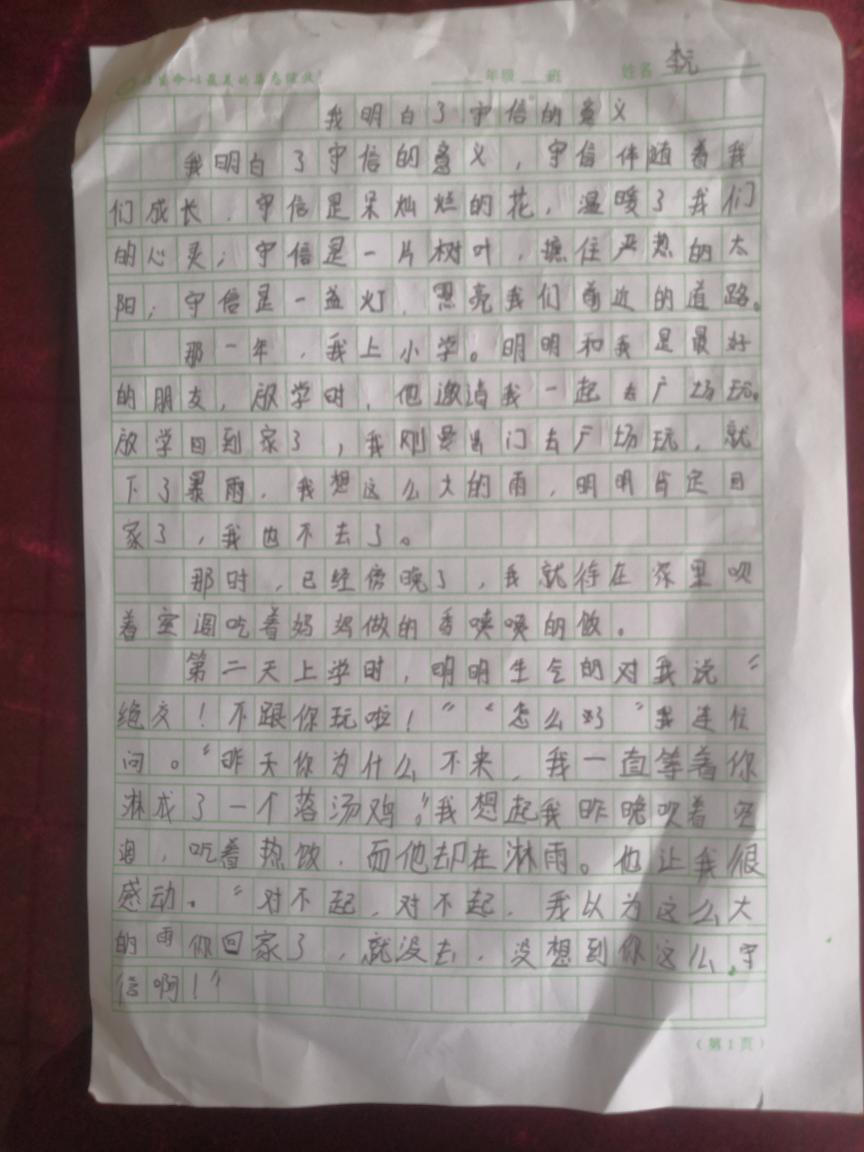 让生命以最美的姿态绽放！ 年级 班 姓名
我明白了守信的意义
我明白了守信的意义，守信伴随着我
们成长，守信是朵灿烂的花，温暖了我们
的心灵；守信是一片树叶，遮住严热的太
阳；守信是一盏灯，照亮我们前进的道路。
那一年，我上小学。明明和我是最好
的朋友，放学时，他邀请我一起去广场玩。
放学回到家了，我刚要出门去广场玩，就
下了暴雨，我想这么大的雨，明明肯定回
家了，我也不去了。
那时，已经傍晚了，我就待在家里吹
着空调吃着妈妈做的香喷喷的饭。
第二天上学时，明明生气的对我说“
绝交！不跟你玩啦！”“怎么了”我连忙
问。“昨天你为什么不来，我一直等着你
淋成了一个落汤鸡。”我想起我昨晚吹着空
调，吃着热饭，而他却在淋雨。他让我很
感动。“对不起，对不起，我以为这么大
的雨你回家了，就没去，没想到你这么守
信啊！”
（第1页）